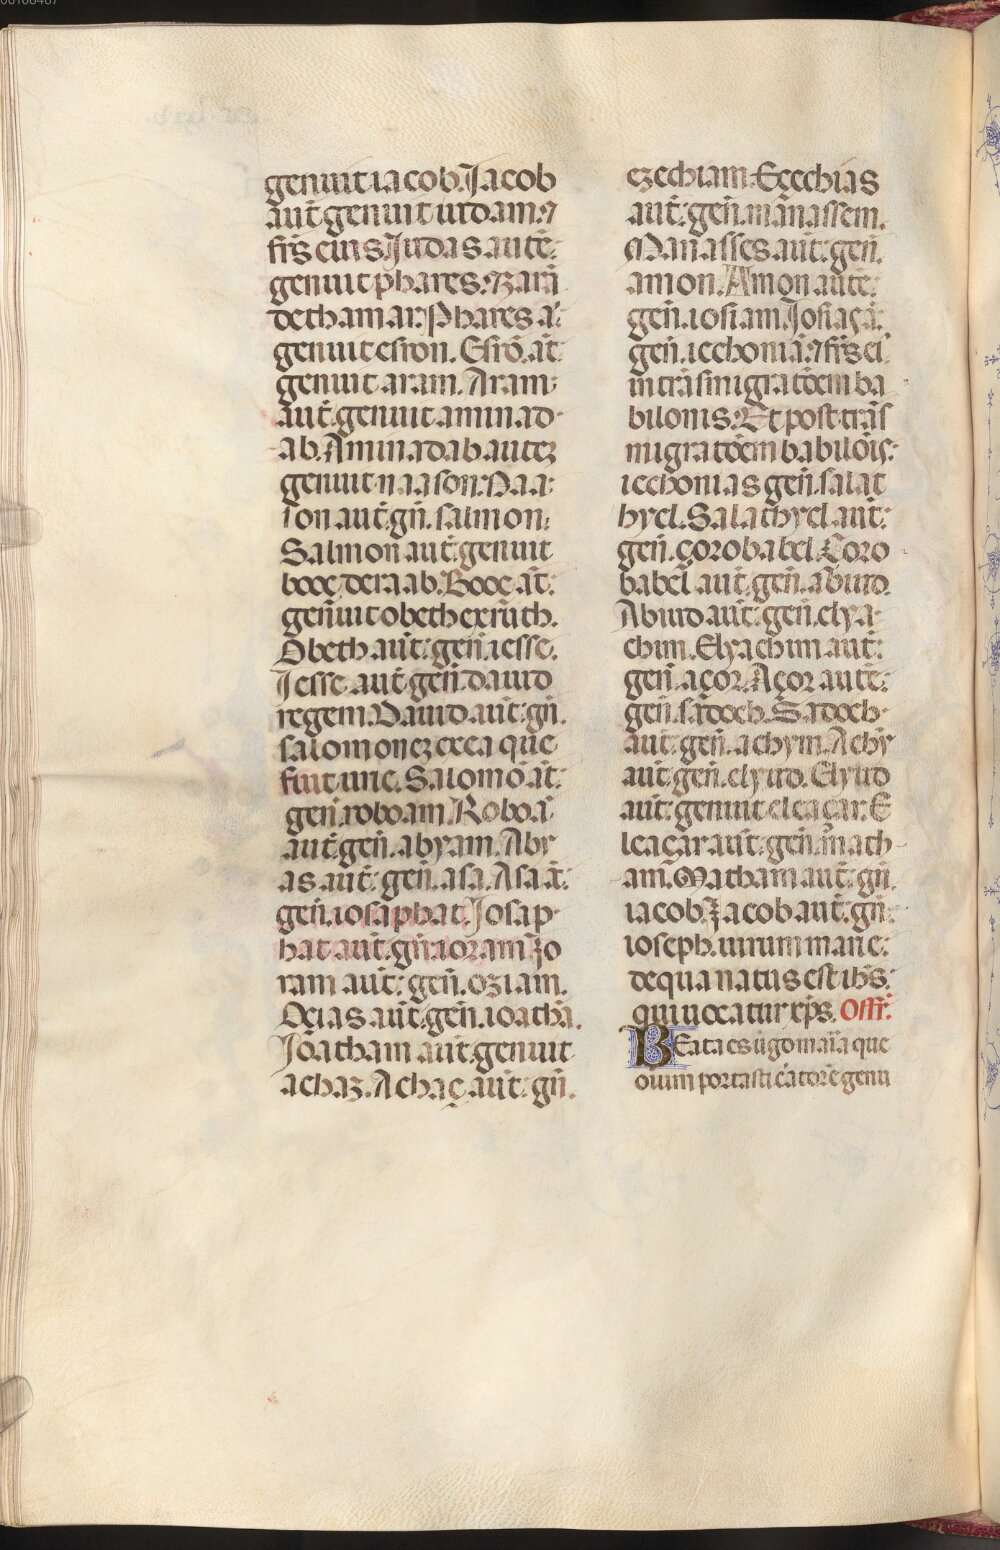 genuit iacob. Jacob
aut̄. genuit iudam. ⁊
fr̄s eius. Judas autē.
genuit phares. ⁊ zarā
de thamar. Phares ā.
genuit esron. Esrō. āt.
genuit aram. Aram.
aut̄. genuit aminad-
ab. Aminadab autez
genuit naason. Naa-
son aut̄. gn̄. salmon.
Salmon aut̄. genuit
booç de raab. Booç āt.
genuit obeth ex ruth.
Obeth aut̄. gen̄. iesse.
Jesse aut̄. gen̄. dauid
regem. Dauid aut̄. gn̄.
salomonez ex ea que
fuit urie. Salomō āt.
gen̄. roboam. Roboā
aut̄. gen̄. abyam. Aby
as aut̄. gen̄. asa. Asa ā.
gen̄. iosaphat. Josap-
hat aut̄. gn̄. ioram. Jo
ram aut̄. gen̄. oziam.
Oçias aut̄. gen̄. ioathā.
Joatham aut̄. genuit
achaz. Achaç aut̄. gn̄.
ezechiam. Eçechias
aut̄. gen̄. manassem.
Manasses aut̄. gen̄.
amon. Amon autē.
gen̄. iosiam. Josias ā.
gen̄. iechoniā. ⁊ fr̄s ei᾽
in trāsmigratōem ba
bilonis. Et post trās
migratōem babilōis.
iechonias gen̄. salat
hyel. Salathyel aut̄.
gen̄. çorobabel. Çoro
babel aut̄. gen̄. abiud.
Abiud aut̄. gen̄. elya-
chim. Elyachim aut̄.
gen̄. açor. Açor autē.
gen̄. sadoch. Sadoch
aut̄. gen̄. achym. Achȳ
aut̄. gen̄. elyud. Elyud
aut̄. genuit eleaçar. E
leaçar aut̄. gen̄. math-
am. Matham aut̄. gn̄.
iacob. Jacob aut̄. gn̄.
ioseph. uirum marie.
de qua natus est ih̄s.
qui uocatur xp̄s. Off̄r.
Beata es u̓go maria que
d̄nm portasti c̓atorē genu